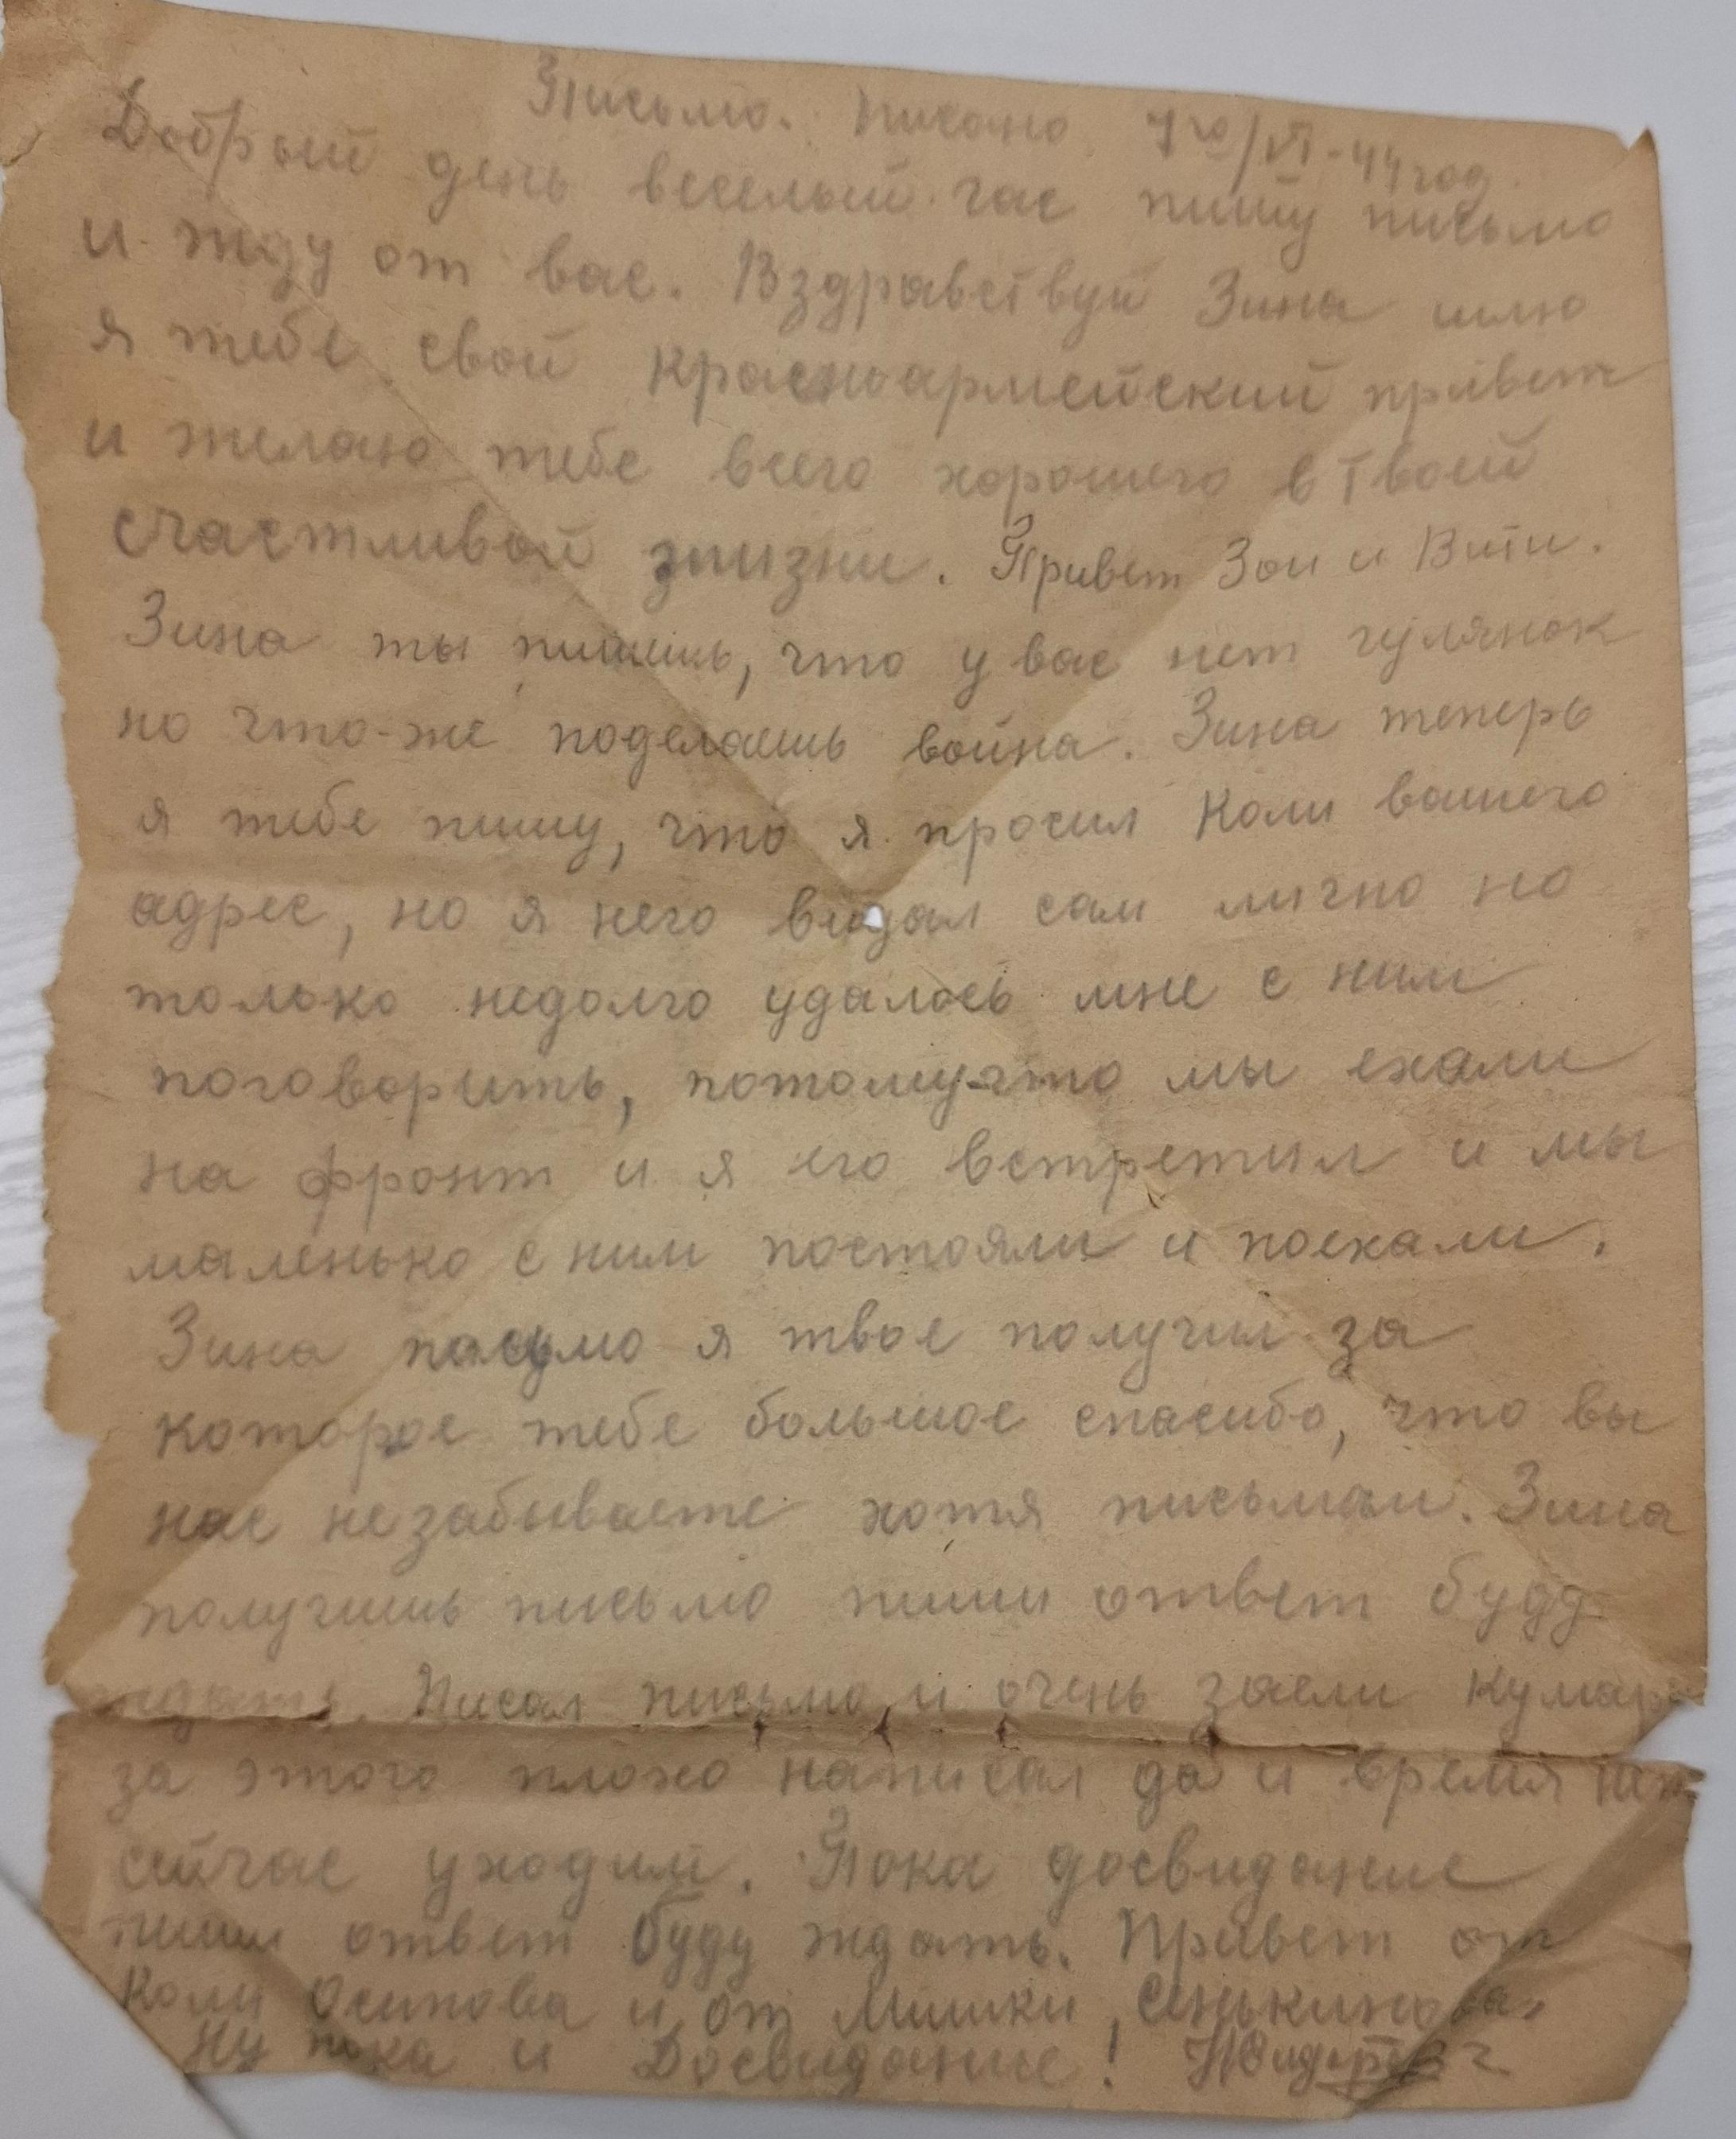 Письмо. писано 7го/VI-44 год.
Добрый день веселый час пишу письмо
и жду от вас. Вздравствуй Зина шлю
я тебе свой красноармейский привет
и желаю тебе всего хорошего в твоей
счастливой жизни. Привет Зои и Вити.
Зина ты пишешь, что у вас нет гулянок
но что-же поделаешь война. Зина теперь
я тебе пишу, что я просил Коли вашего
адрес, но я него видал сам лично но
только недолго удалось мне с ним
поговорить, потому-что мы ехали
на фронт и я его встретил и мы
маленько с ним постояли и поехали.
Зина письмо я твое получил за
которое тебе большое спасибо, что вы
нас незабываете хотя письмами. Зина
получишь письмо пиши ответ буду
ждать. Писал письмо и очень заели кумары
за этого плохо написал да и время нет
сейчас уходим. Пока досвидание
пиши ответ буду ждать. Привет от
Коли Осипова и от Мишки Сенькинова
Ну пока и Досвидание!